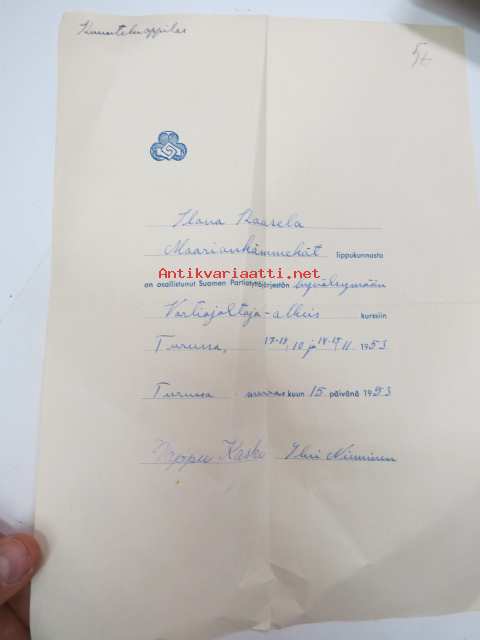 Kuunteluoppilas
Ilona Raasela
Maariankämmekät lippukunnasta
Antikvariaatti.net
on osallistunut Suomen Partiotyttöjärjestön hyväksymään
Vartiojohtaja-alkeis kurssiin
Turussa, 17-18.10 ja 14-15.11 1953
Turussa marras kuun 15 päivänä 1953
Kaske Ilmi Nieminen